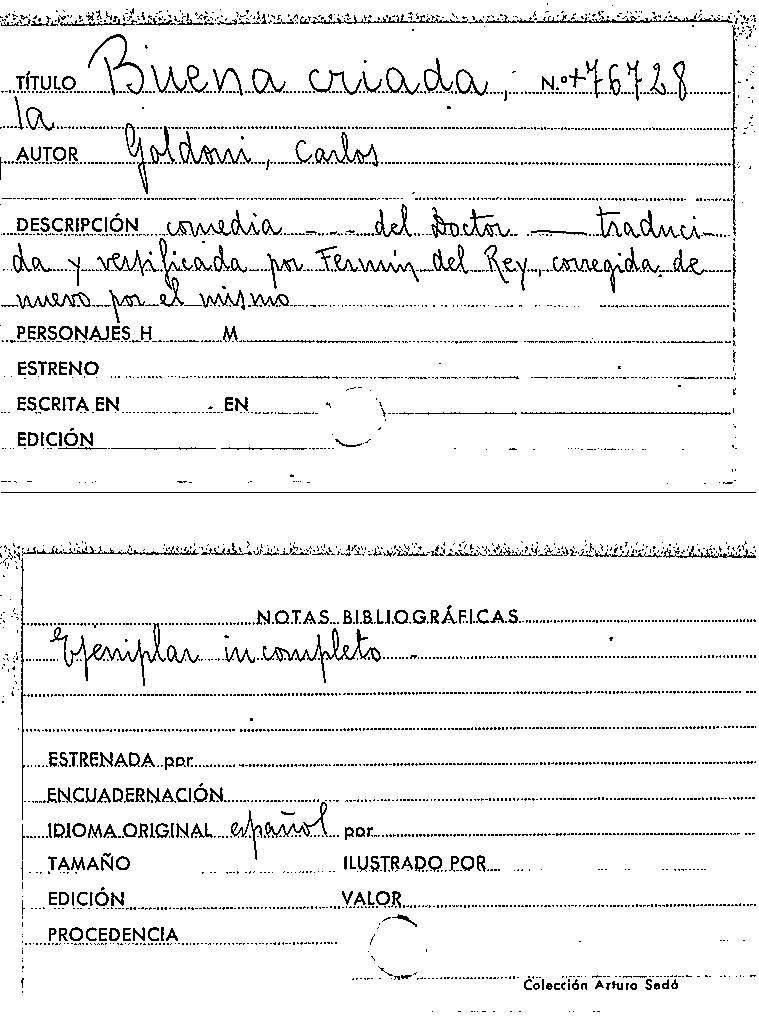 TÍTULO Buena criada, N.º +76728
la
AUTOR Goldoni, Carlos
DESCRIPCIÓN comedia --- del Doctor — traduci-
da y versificada por Fermín del Rey, corregida de
nuevo por el mismo
PERSONAJES H M
ESTRENO
ESCRITA EN EN
EDICIÓN
NOTAS BIBLIOGRÁFICAS
Ejemplar incompleto
ESTRENADA por
ENCUADERNACIÓN
IDIOMA ORIGINAL español por
TAMAÑO ILUSTRADO POR
EDICIÓN VALOR
PROCEDENCIA
Colección Arturo Sedó